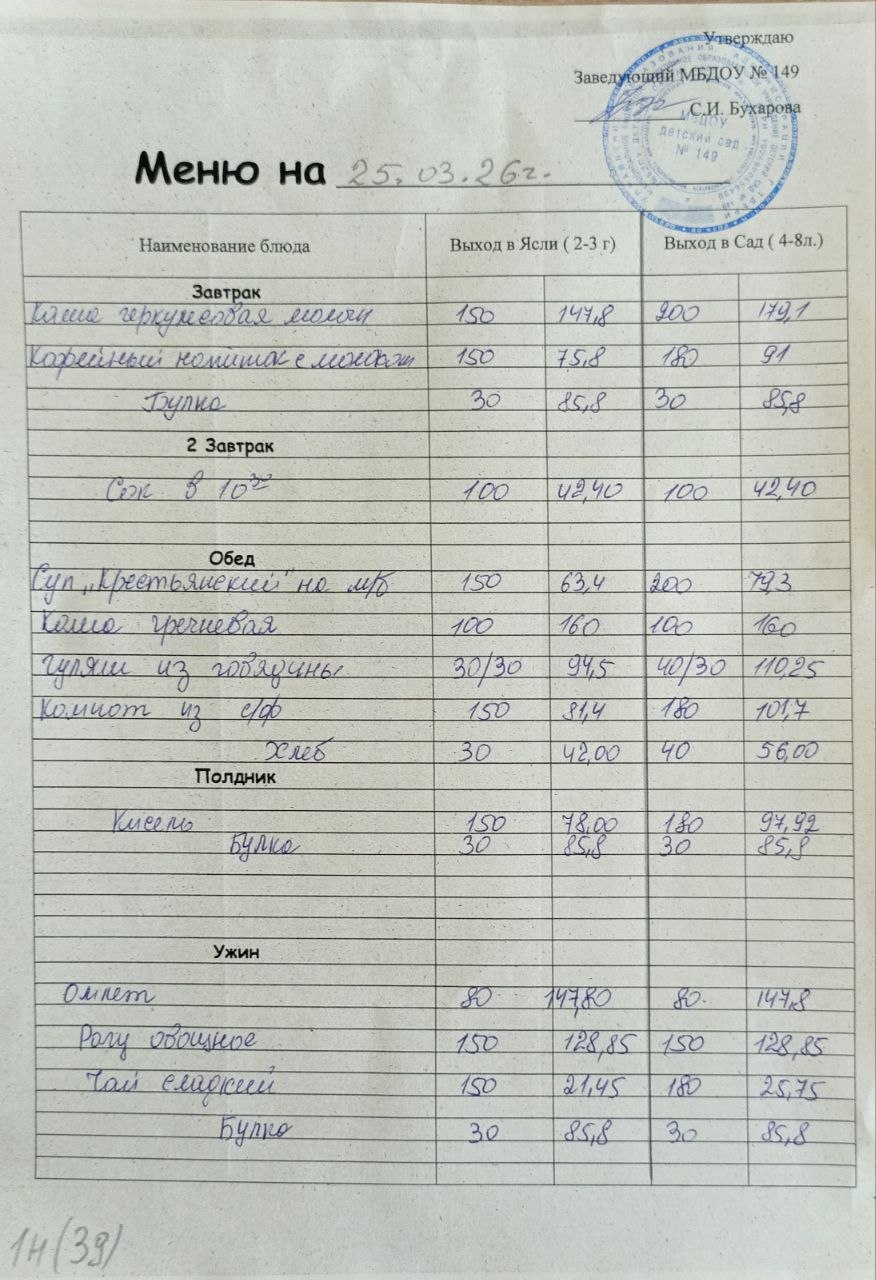 Утверждаю
Заведующий МБДОУ № 149
С.И. Бухарова
МБДОУ
детский сад
№ 149
Меню на 25.03.26г.
Наименование блюда Выход в Ясли ( 2-3 г) Выход в Сад ( 4-8л.)
Завтрак
Каша геркулесовая молочн 150 147,8 200 179,1
Кофейный напиток с молоком 150 75,8 180 91
Булка 30 85,8 30 85,8
2 Завтрак
Сок в 10³⁰ 100 42,40 100 42,40
Обед
Суп „Крестьянский" на м/б 150 63,4 200 79,3
Каша гречневая 100 160 100 160
Гуляш из говядины 30/30 94,5 40/30 110,25
Компот из с/ф 150 81,4 180 101,7
Хлеб 30 42,00 40 56,00
Полдник
Кисель 150 78,00 180 97,92
Булка 30 85,8 30 85,8
Ужин
Омлет 80 147,80 80 147,8
Рагу овощное 150 128,85 150 128,85
Чай сладкий 150 21,45 180 25,75
Булка 30 85,8 30 85,8
1н(39)